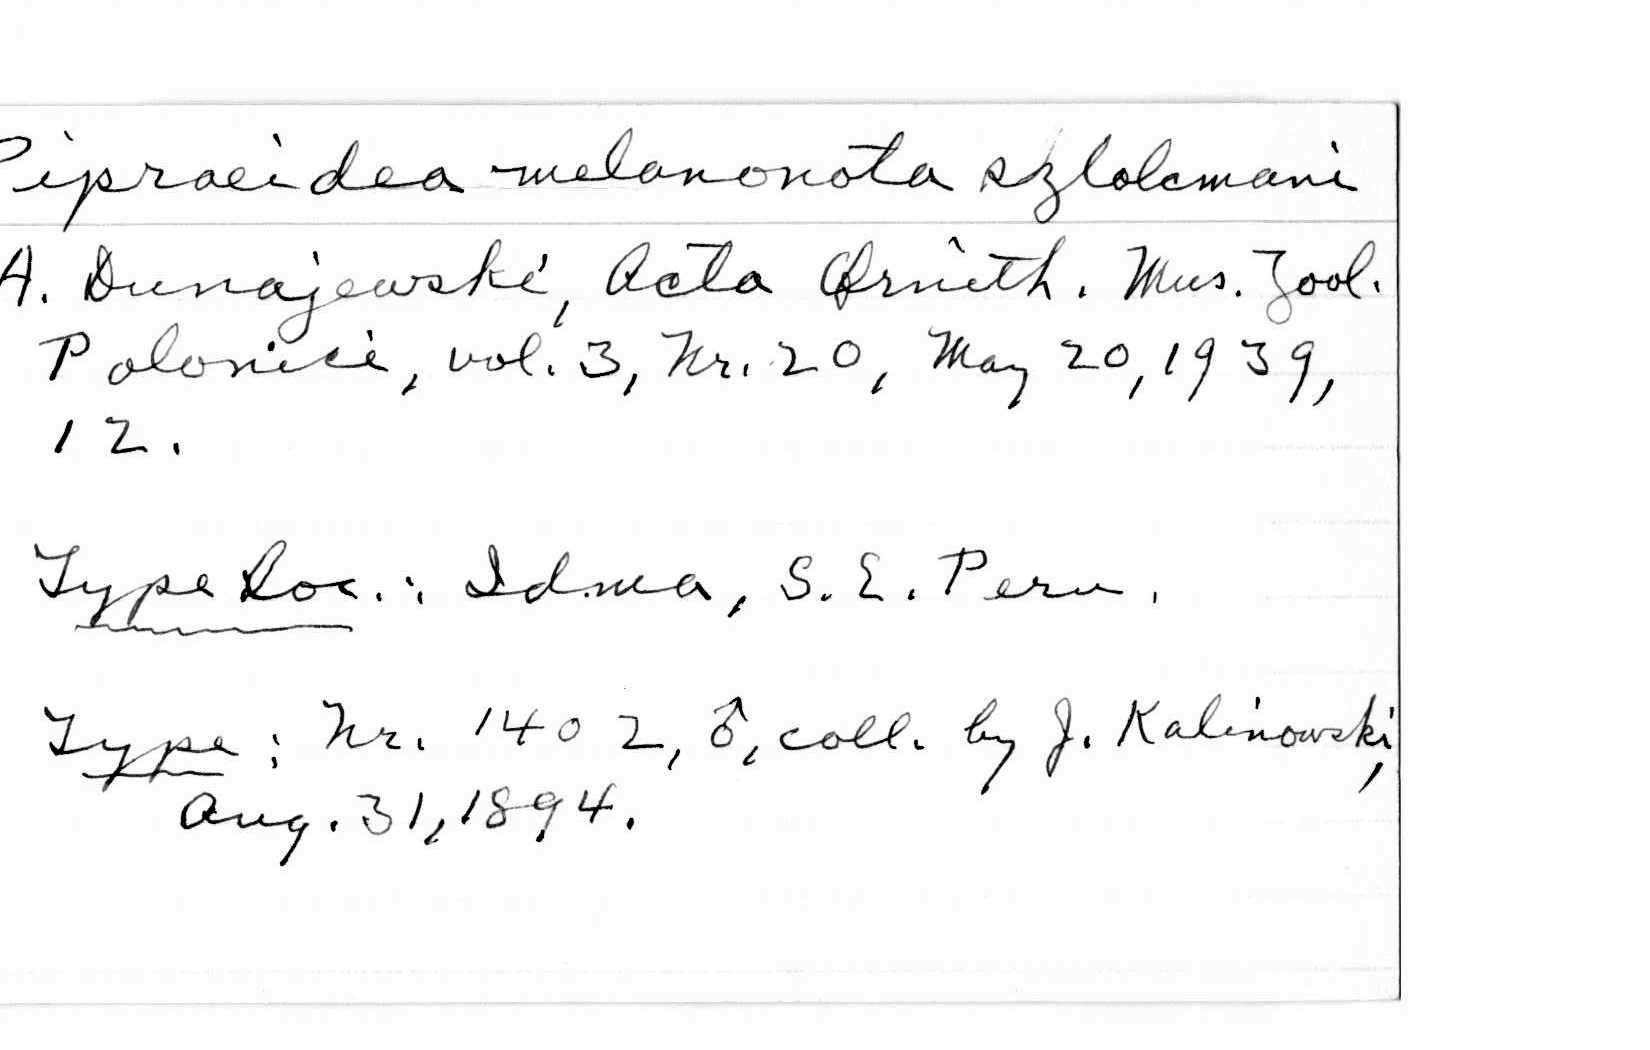 Pipraeidea melanonota szlolcmani
A. Dunajewski, Acta Ornith. Mus. Zool.
Polonici, vol. 3, Nr. 20, May 20, 1939,
12.
Type Loc.: Idma, S. E. Peru.
Type: Nr. 1402, ♂, coll. by J. Kalinowski,
Aug. 31, 1894.